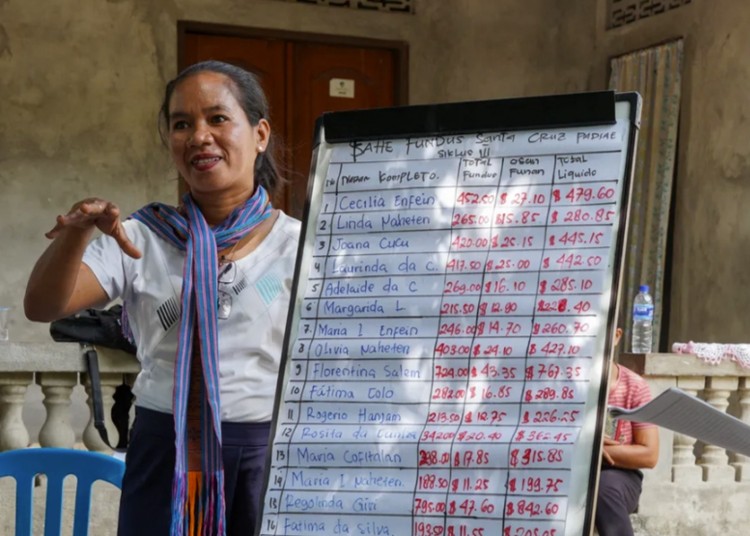 FAHE FUNDUS Santa CRUZ
SIKLUO III
No Naran Kompleto. Total Fundus OSAN FUNAN Total Liquido
1 Cecilia Enfein 452.50 $ 27.10 $ 479.60
2 Linda Naheten 265.00 $15.85 $ 280.85
3 Joana Cucu 420.00 $ 25.15 $ 445.15
4 Laurinda da C. 417.50 $ 25.00 $ 442.50
5 Adelaide da C 269.00 $ 16.10 $ 285.10
6 Margarida L 215.50 $ 12.90
7 Maria I Enfein 246.00 $ 14.70 $ 260.70
8 Olivia Naheten 403.00 $ 24.10 $ 427.10
9 Florentina Salem 724.00 $ 43.35 $ 767.35
10 Fatima Colo 282.00 $ 16.85
11 Rogerio Hangam 213.50 $ 12.75 $ 226.25
12 Rosita da 342.00 $ 20.40 $ 362.45
13 Maria Cofitalan 298.00 $ 17.85 $ 315.85
14 Maria I Naheten 188.50 $ 11.25 $ 199.75
15 Regolinda Gisi 795.00 $ 47.60 $ 842.60
16 Fatima da Silva 193.50 $ 11.55 $ 205.05